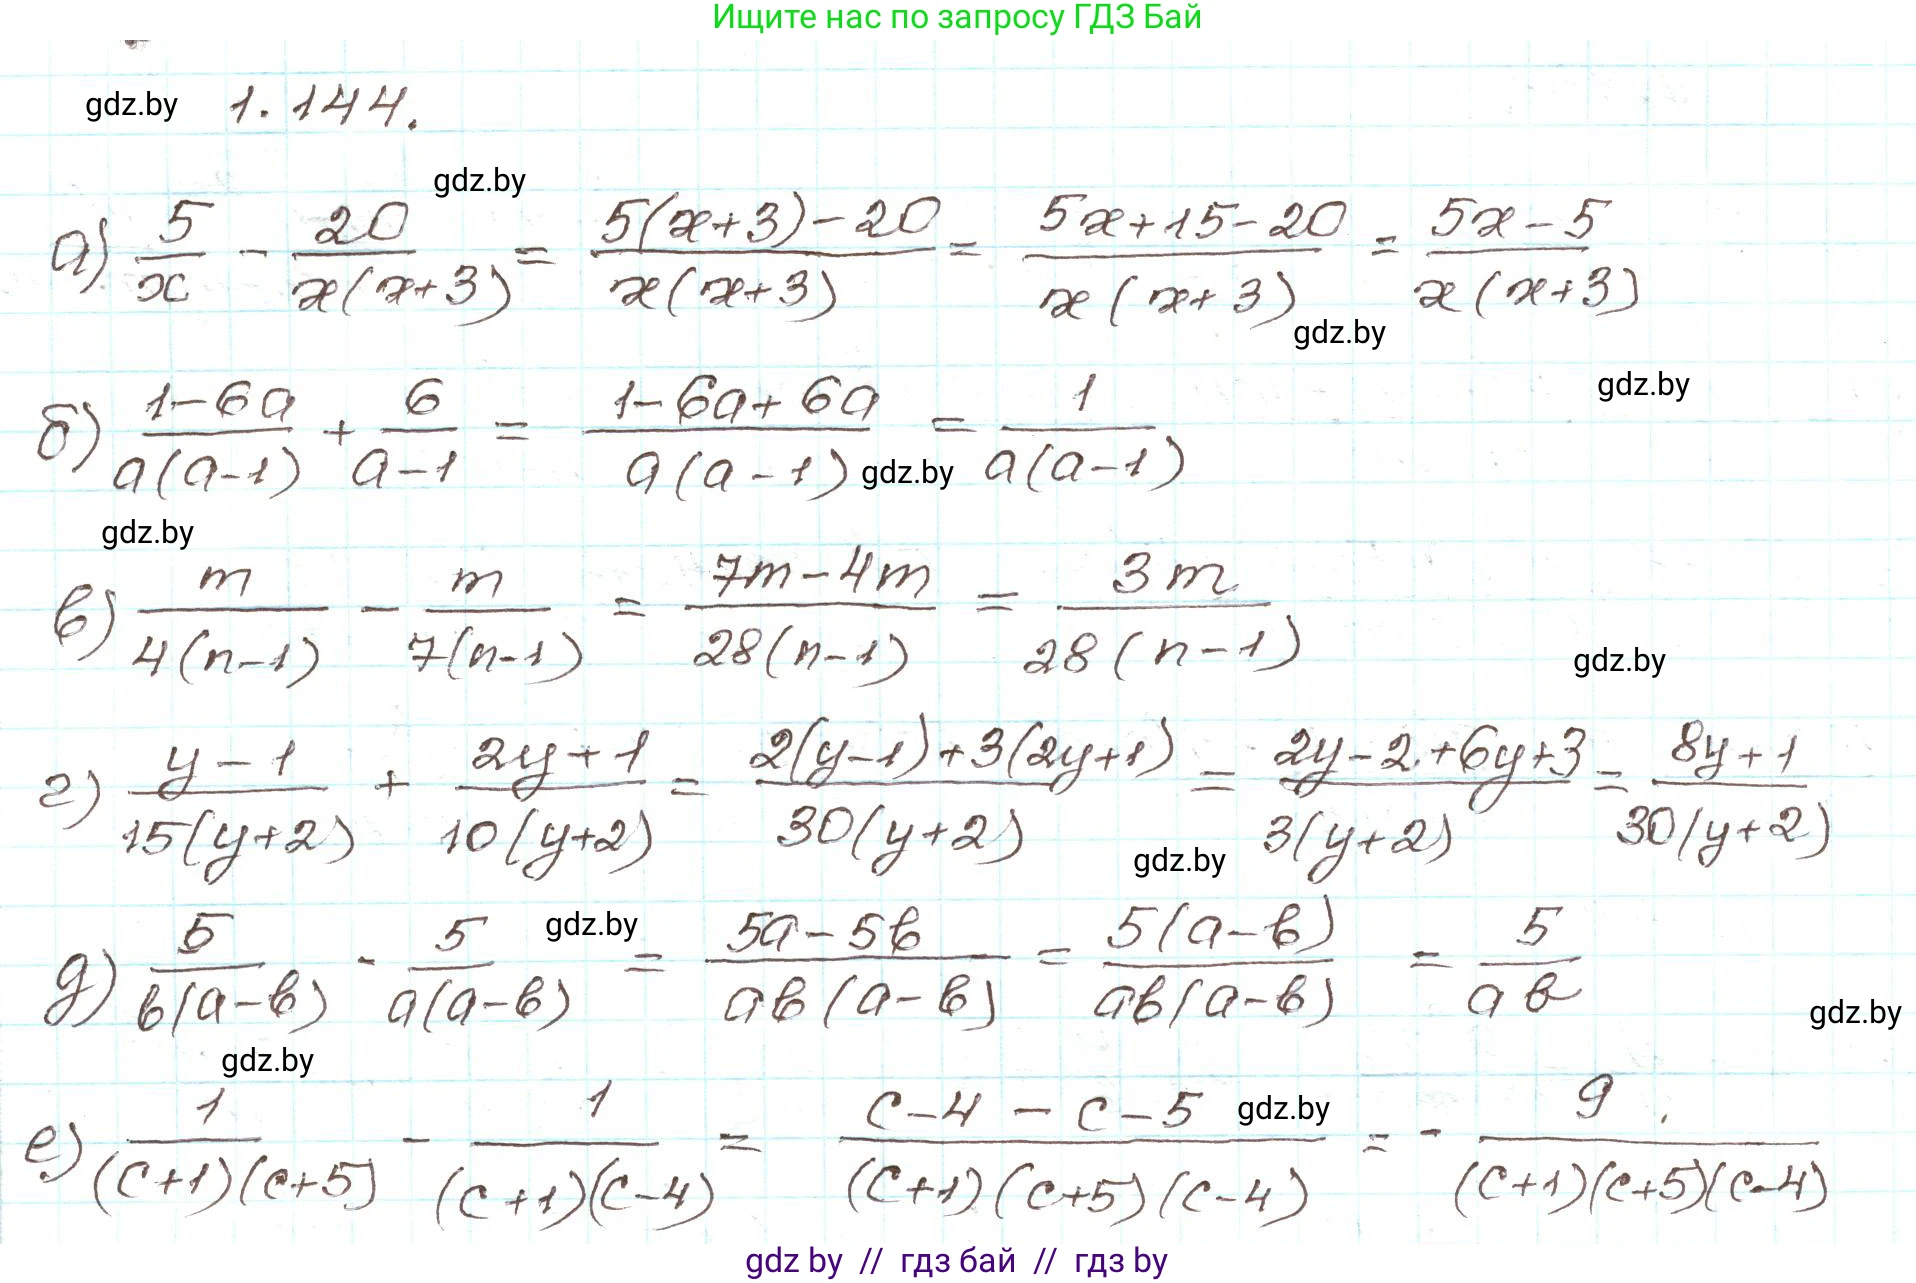 Ищите нас по запросу ГДЗ Бай
gdz.by 1.144.
gdz.by
а) 5/x - 20/x(x+3) = 5(x+3)-20/x(x+3) = 5x+15-20/x(x+3) = 5x-5/x(x+3)
gdz.by
gdz.by
б) 1-6a/a(a-1) + 6/a-1 = 1-6a+6a/a(a-1) = 1/a(a-1)
gdz.by
gdz.by
в) m/4(n-1) - m/7(n-1) = 7m-4m/28(n-1) = 3m/28(n-1)
gdz.by
г) y-1/15(y+2) + 2y+1/10(y+2) = 2(y-1)+3(2y+1)/30(y+2) = 2y-2+6y+3/3(y+2) = 8y+1/30(y+2)
gdz.by
gdz.by
д) 5/b(a-b) - 5/a(a-b) = 5a-5b/ab(a-b) = 5(a-b)/ab(a-b) = 5/ab
gdz.by
gdz.by
е) 1/(c+1)(c+5) - 1/(c+1)(c-4) = c-4-c-5/(c+1)(c+5)(c-4) = - 9/(c+1)(c+5)(c-4).
gdz.by
gdz by // гдз бай // гдз by